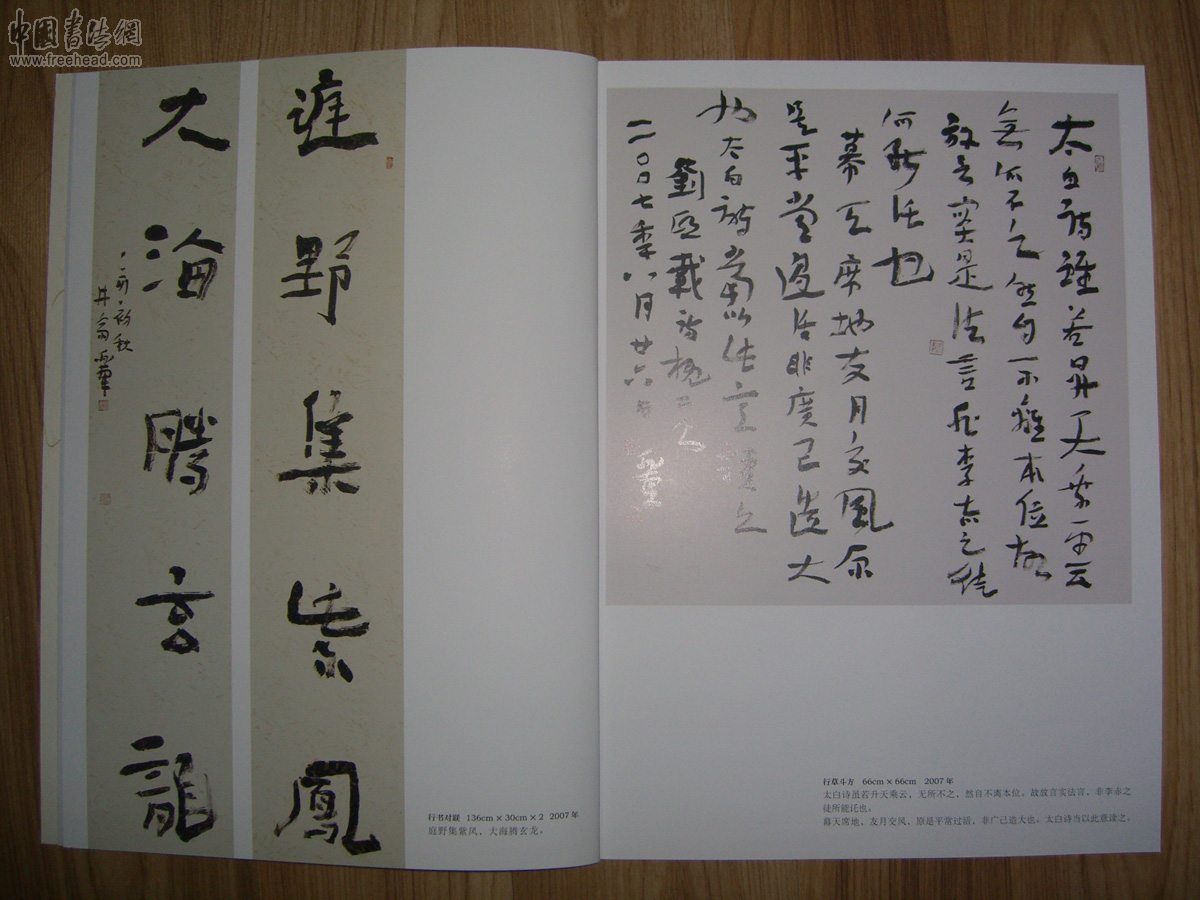 中国书法网
www.freehead.com
庭野集紫鳳
大海騰玄龍
行书对联 136cm×30cm×2 2007年
庭野集紫凤，大海腾玄龙。
太白詩雖若昇天乘雲
無所不之然自不離本位故
放言實是法言非李赤之徒
所能託也
幕天席地友月交風原
是平常過活非廣己造大
也太白詩當以此意讀之
劉熙載詩概二則
二〇〇七年八月廿六日
行草斗方 66cm×66cm 2007年
太白诗虽若升天乘云，无所不之，然自不离本位。故放言实法言，非李赤之
徒所能讬也。
幕天席地，友月交风，原是平常过活，非广己造大也。太白诗当以此意读之。